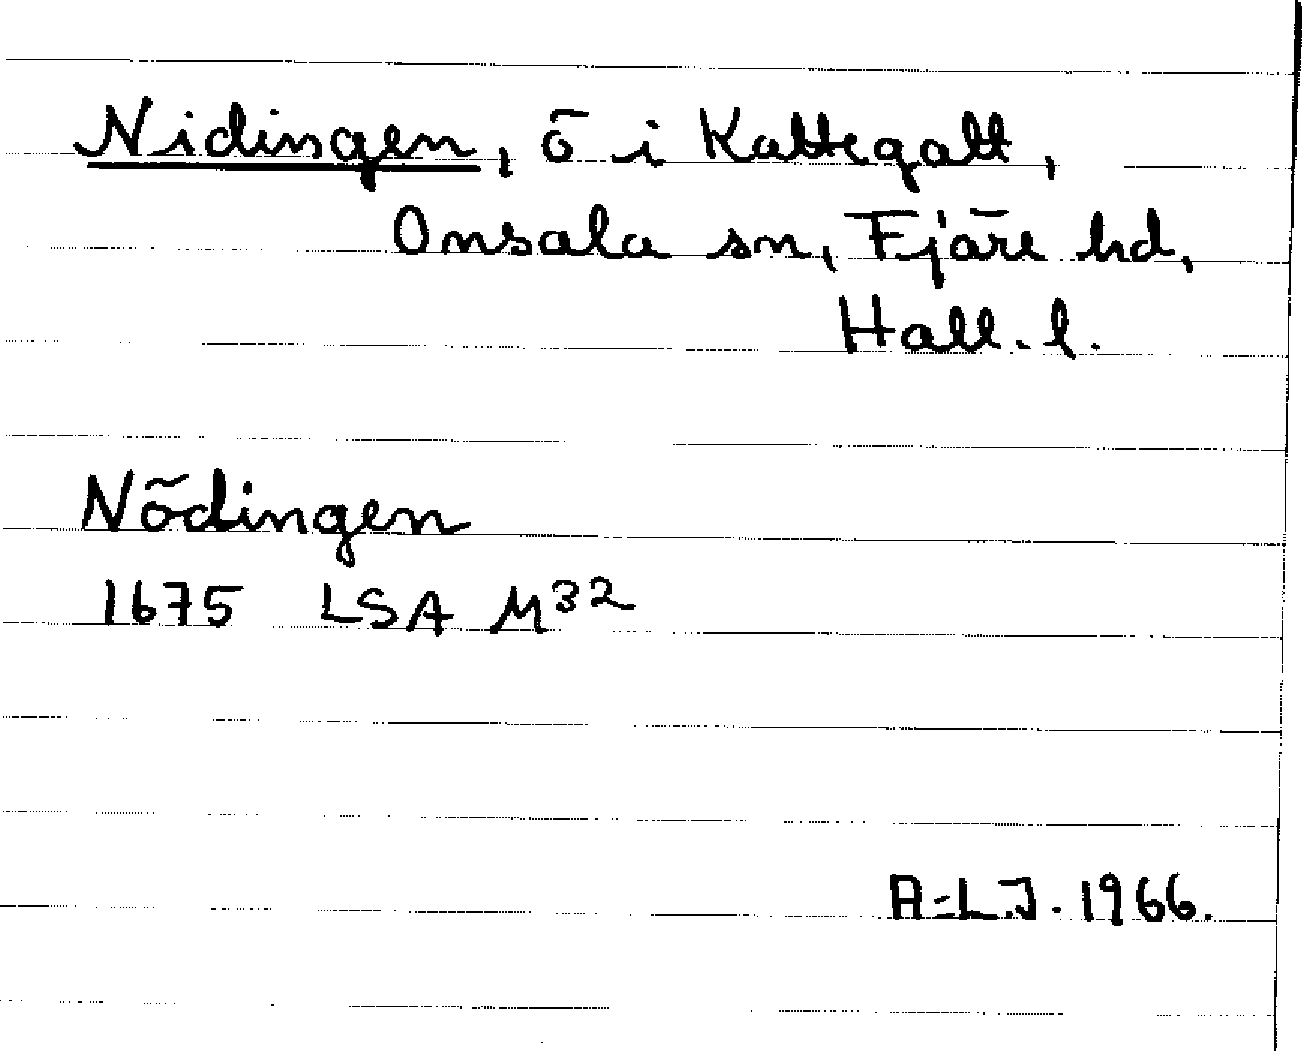 Nidingen, ö i Kattegatt,
Onsala sn, Fjäre hd,
Hall. l.
Nödingen
1675 LSA M³²
A-L.J. 1966.